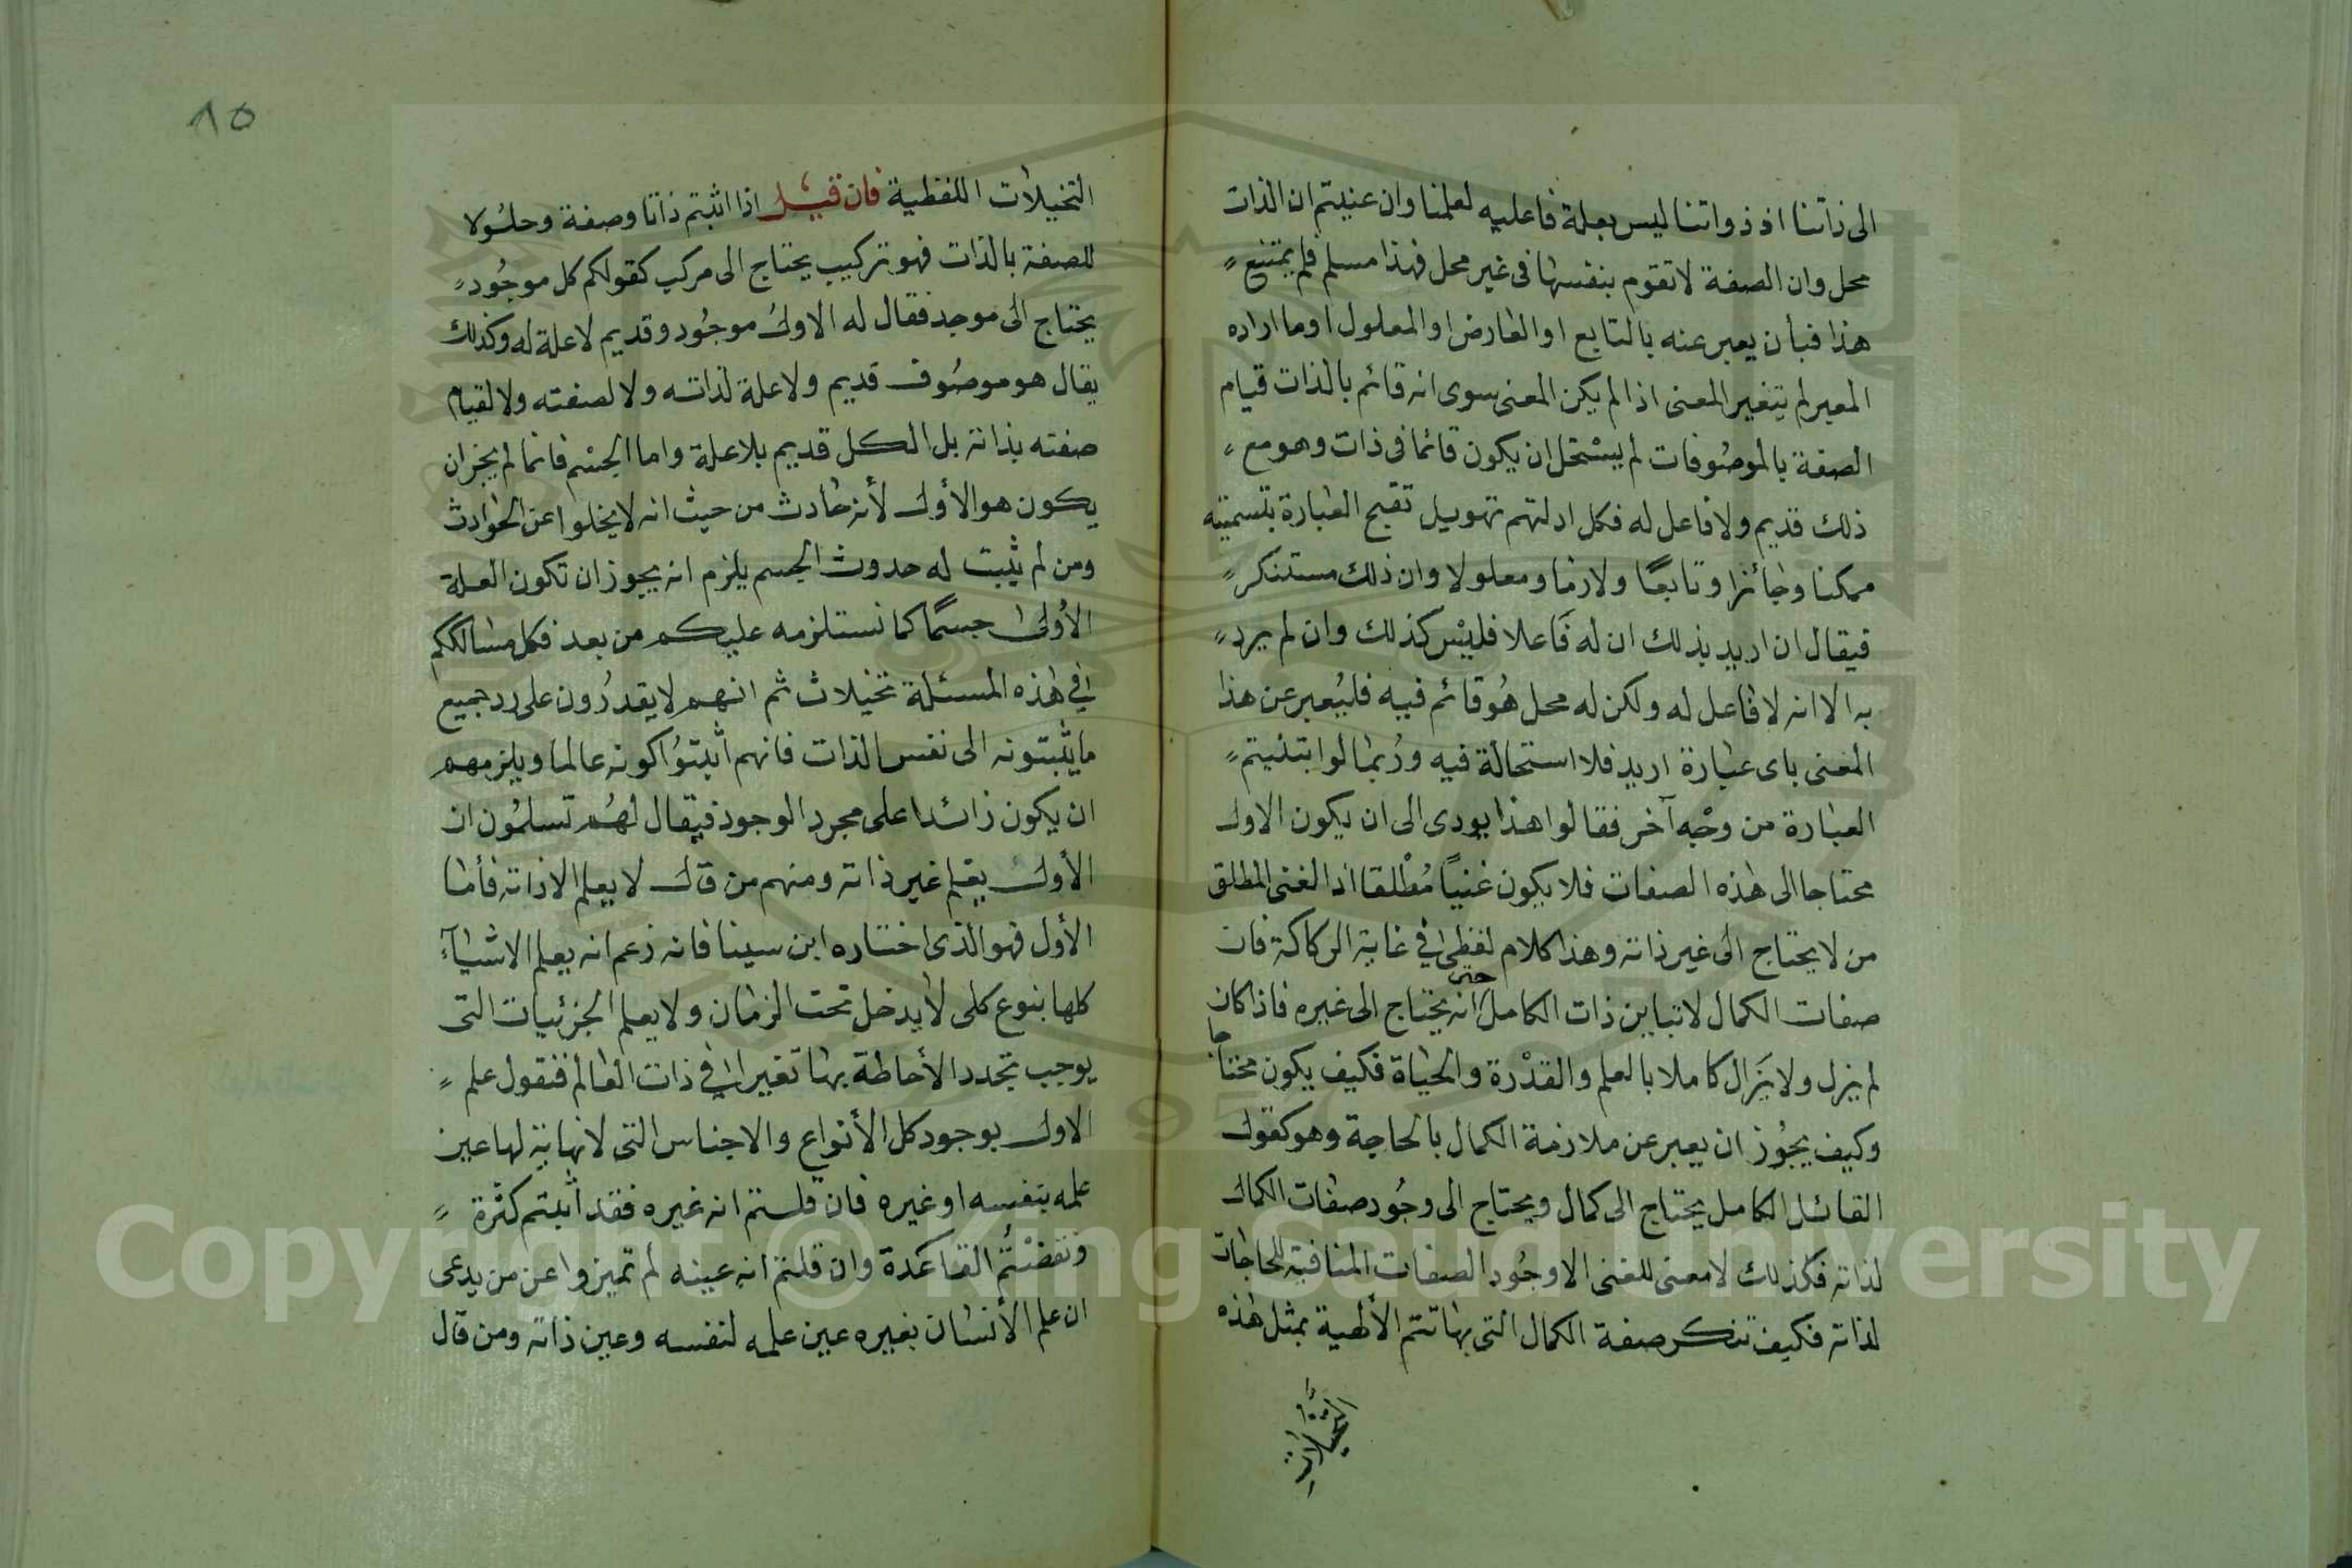 الى ذاتنا اذ ذواتنا ليس بعلة فاعليه لعلمنا وان عنيتم ان الذات
محل وان الصفة لا تقوم بنفسها فى غير محل فهذا مسلم فلم يمتنع
هذا فبأن يعبر عنه بالتابع او العارض او المعلول او ما اراده
المعبر لم يتغير المعنى اذا لم يكن المعنى سوى انه قائم بالذات قيام
الصفة بالموصوفات لم يستحل ان يكون قائما فى ذات وهو مع
ذلك قديم ولا فاعل له فكل ادلتهم تهويل تقبح العبارة بتسميته
ممكنا وجائزا وتابعًا ولازما ومعلولا وان ذلك مستنكر
فيقال ان اريد بذلك ان له فَاعلا فليْس كذلك وان لم يرد
به الا انه لا فاعل له ولكن له محل هُو قائم فيه فليُعبر عن هذا
المعنى باى عبارة اريد فلا استحالة فيه ورُبما لوا بتنيتم
العبارة من وجْه آخر فقالوا هذا يودى الى ان يكون الاول
محتاجا الى هذه الصفات فلا يكون غنيًا مُطْلقا اذ الغنى المطلق
من لا يحتاج الى غير ذاته وهذا كلام لفظى فى غاية الركاكة فان
صفات الكمال لا تباين ذات الكامل حتى انه يحتاج الى غيره فاذا كان
لم يزل ولا يَزال كاملا بالعلم والقدْرة والحياة فكيف يكون محتاجا
وكيف يجُوز ان يعبر عن ملازمة الكمال بالحاجة وهو كقول
القائل الكامل يحتاج الى كمال ويحتاج الى وجُود صفات الكمال
لذاته فكذلك لا معنى للغنى الا وجُود الصفات المنافية للحاجات
لذاته فكيف تنكر صفة الكمال التى بها تتم الألهية بمثل هذه
التخيلات
١٥
التخيلات اللفظية فان قيل اذا اثبتم ذاتا وصفة وحلُولا
للصفة بالذات فهو تركيب يحتاج الى مركب كقولكم كل موجُود
يحتاج الى موجد فقال له الاول موجُود وقديم لا علة له وكذلك
يقال هو موصُوف قديم ولا علة لذاته ولا لصفته ولا لقيام
صفته بذاته بل الكل قديم بلا علة واما الجسْم فانما لم يجز ان
يكون هو الأول لأنه حادث من حيث انه لا يخلوا عن الحوادث
ومن لم يثبت له حدوث الجسم يلزم انه يجوز ان تكون العلة
الأولى جسمًا كما نستلزمه عليكم من بعد فكل مسالككم
فى هذه المسئلة تخيلات ثم انهم لا يقدرُون على رد جميع
ما يثبتونه الى نفس الذات فانهم أثبتوُا كونه عالما ويلزمهم
ان يكون زائدا على مجرد الوجود فيقال لهُم تسلمُون ان
الأول يعلم غير ذاته ومنهم من قال لا يعلم الا ذاته فأما
الأول فهو الذى اختاره ابن سينا فانه زعم انه يعلم الاشيآء
كلها بنوع كلى لا يدخل تحت الزمان ولا يعلم الجزئيات التى
يوجب تجدد الأحاطة بها تغيرا فى ذات العالم فنقول علم
الاول بوجود كل الأنواع والاجناس التى لا نهاية لها عين
علمه بنفسه او غيره فان قلتم انه غيره فقد أثبتم كثرة
ونقضْتُم القاعدة وان قلتم انه عينه لم تميزوا عن من يدعى
ان علم الأنسان بغيره عين علمه لنفسه وعين ذاته ومن قال
Copyright © King Saud University